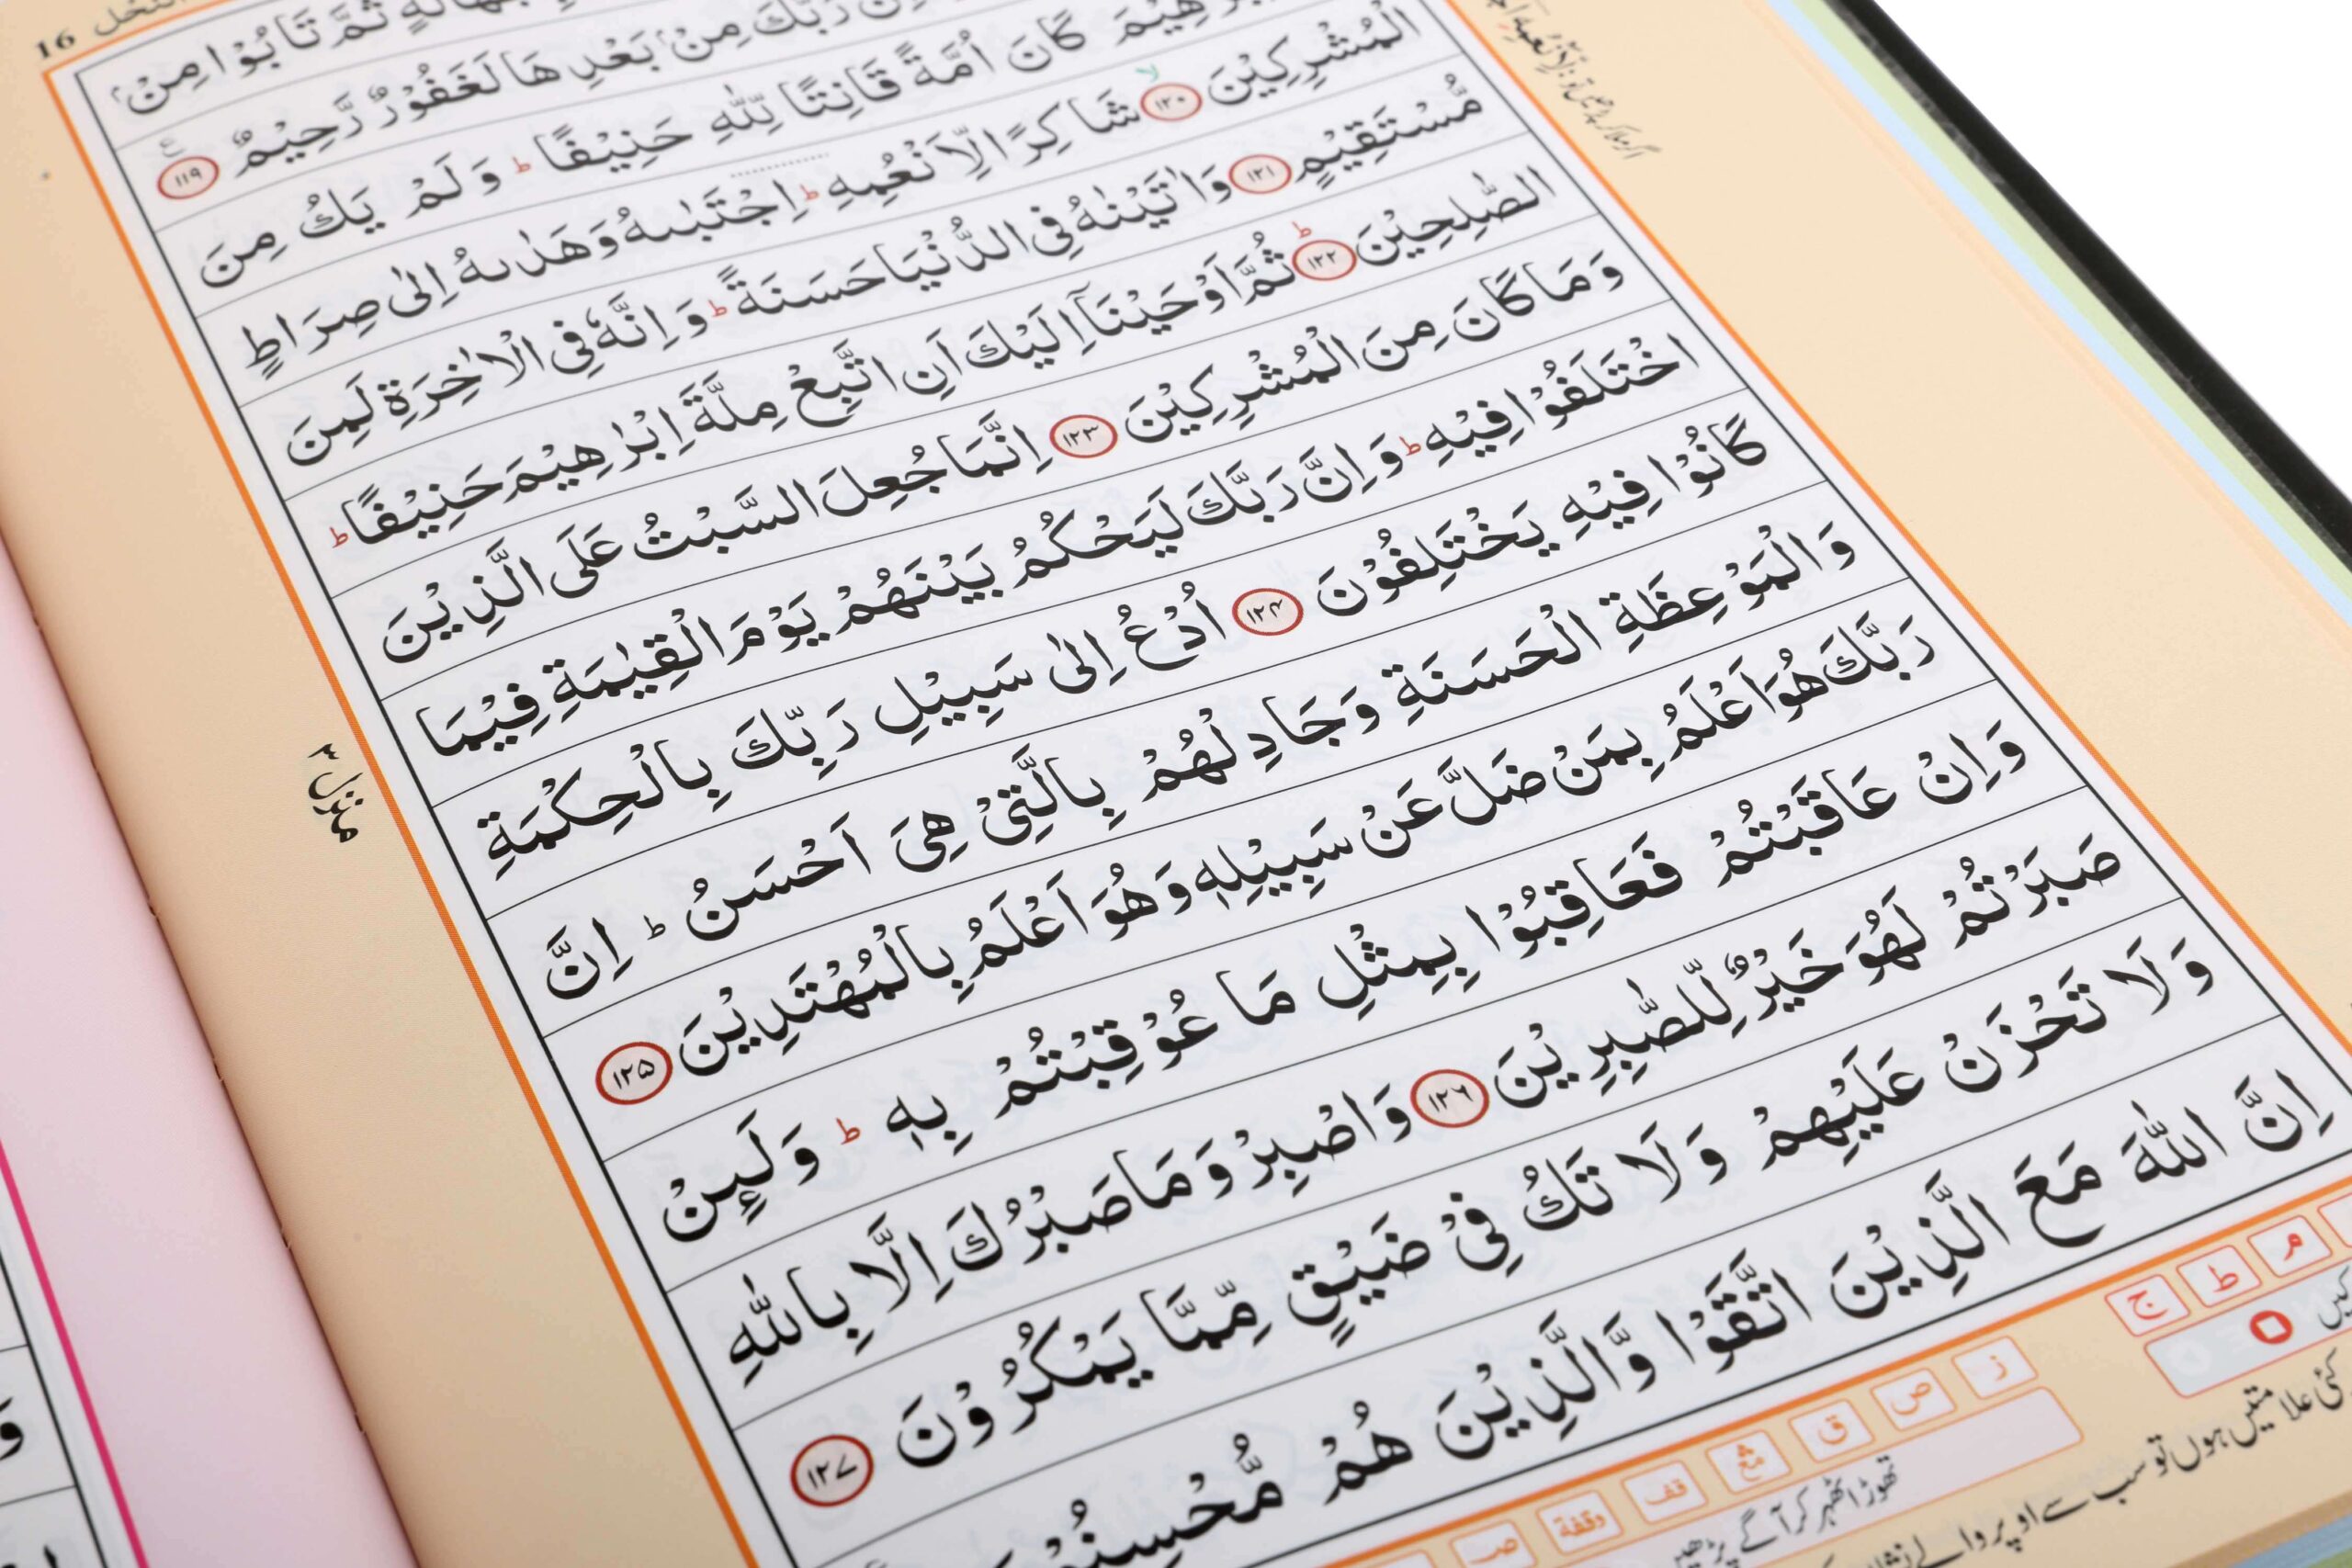 النحل 16
ثُمَّ تَابُوْا مِنْۢ
رَبَّكَ مِنْۢ بَعْدِهَا لَغَفُوْرٌ رَّحِيْمٌ ۱۱۹
كَانَ اُمَّةً قَانِتًا لِّلّٰهِ حَنِيْفًا ؕ وَلَمْ يَكُ مِنَ
الْمُشْرِكِيْنَ ۱۲۰ شَاكِرًا لِّاَنْعُمِهٖ ؕ اِجْتَبٰىهُ وَهَدٰىهُ اِلٰى صِرَاطٍ
مُّسْتَقِيْمٍ ۱۲۱ وَاٰتَيْنٰهُ فِى الدُّنْيَا حَسَنَةً ؕ وَاِنَّهٗ فِى الْاٰخِرَةِ لَمِنَ
الصّٰلِحِيْنَ ؕ ۱۲۲ ثُمَّ اَوْحَيْنَاۤ اِلَيْكَ اَنِ اتَّبِعْ مِلَّةَ اِبْرٰهِيْمَ حَنِيْفًا ؕ
وَمَا كَانَ مِنَ الْمُشْرِكِيْنَ ۱۲۳ اِنَّمَا جُعِلَ السَّبْتُ عَلَى الَّذِيْنَ
اخْتَلَفُوْا فِيْهِ ؕ وَاِنَّ رَبَّكَ لَيَحْكُمُ بَيْنَهُمْ يَوْمَ الْقِيٰمَةِ فِيْمَا
كَانُوْا فِيْهِ يَخْتَلِفُوْنَ ۱۲۴ اُدْعُ اِلٰى سَبِيْلِ رَبِّكَ بِالْحِكْمَةِ
وَالْمَوْعِظَةِ الْحَسَنَةِ وَجَادِلْهُمْ بِالَّتِىْ هِىَ اَحْسَنُ ؕ اِنَّ
رَبَّكَ هُوَ اَعْلَمُ بِمَنْ ضَلَّ عَنْ سَبِيْلِهٖ وَهُوَ اَعْلَمُ بِالْمُهْتَدِيْنَ ۱۲۵
وَاِنْ عَاقَبْتُمْ فَعَاقِبُوْا بِمِثْلِ مَا عُوْقِبْتُمْ بِهٖ ؕ وَلَئِنْ
صَبَرْتُمْ لَهُوَ خَيْرٌ لِّلصّٰبِرِيْنَ ۱۲۶ وَاصْبِرْ وَمَا صَبْرُكَ اِلَّا بِاللّٰهِ
وَلَا تَحْزَنْ عَلَيْهِمْ وَلَا تَكُ فِىْ ضَيْقٍ مِّمَّا يَمْكُرُوْنَ ۱۲۷
اِنَّ اللّٰهَ مَعَ الَّذِيْنَ اتَّقَوْا وَّالَّذِيْنَ هُمْ
منزل ۳
م ط ج
ز ص ق قف وقفة
تھوڑا ٹھہر کر آگے پڑھیں
کئی علامتیں ہوں تو سب سے اوپر والے